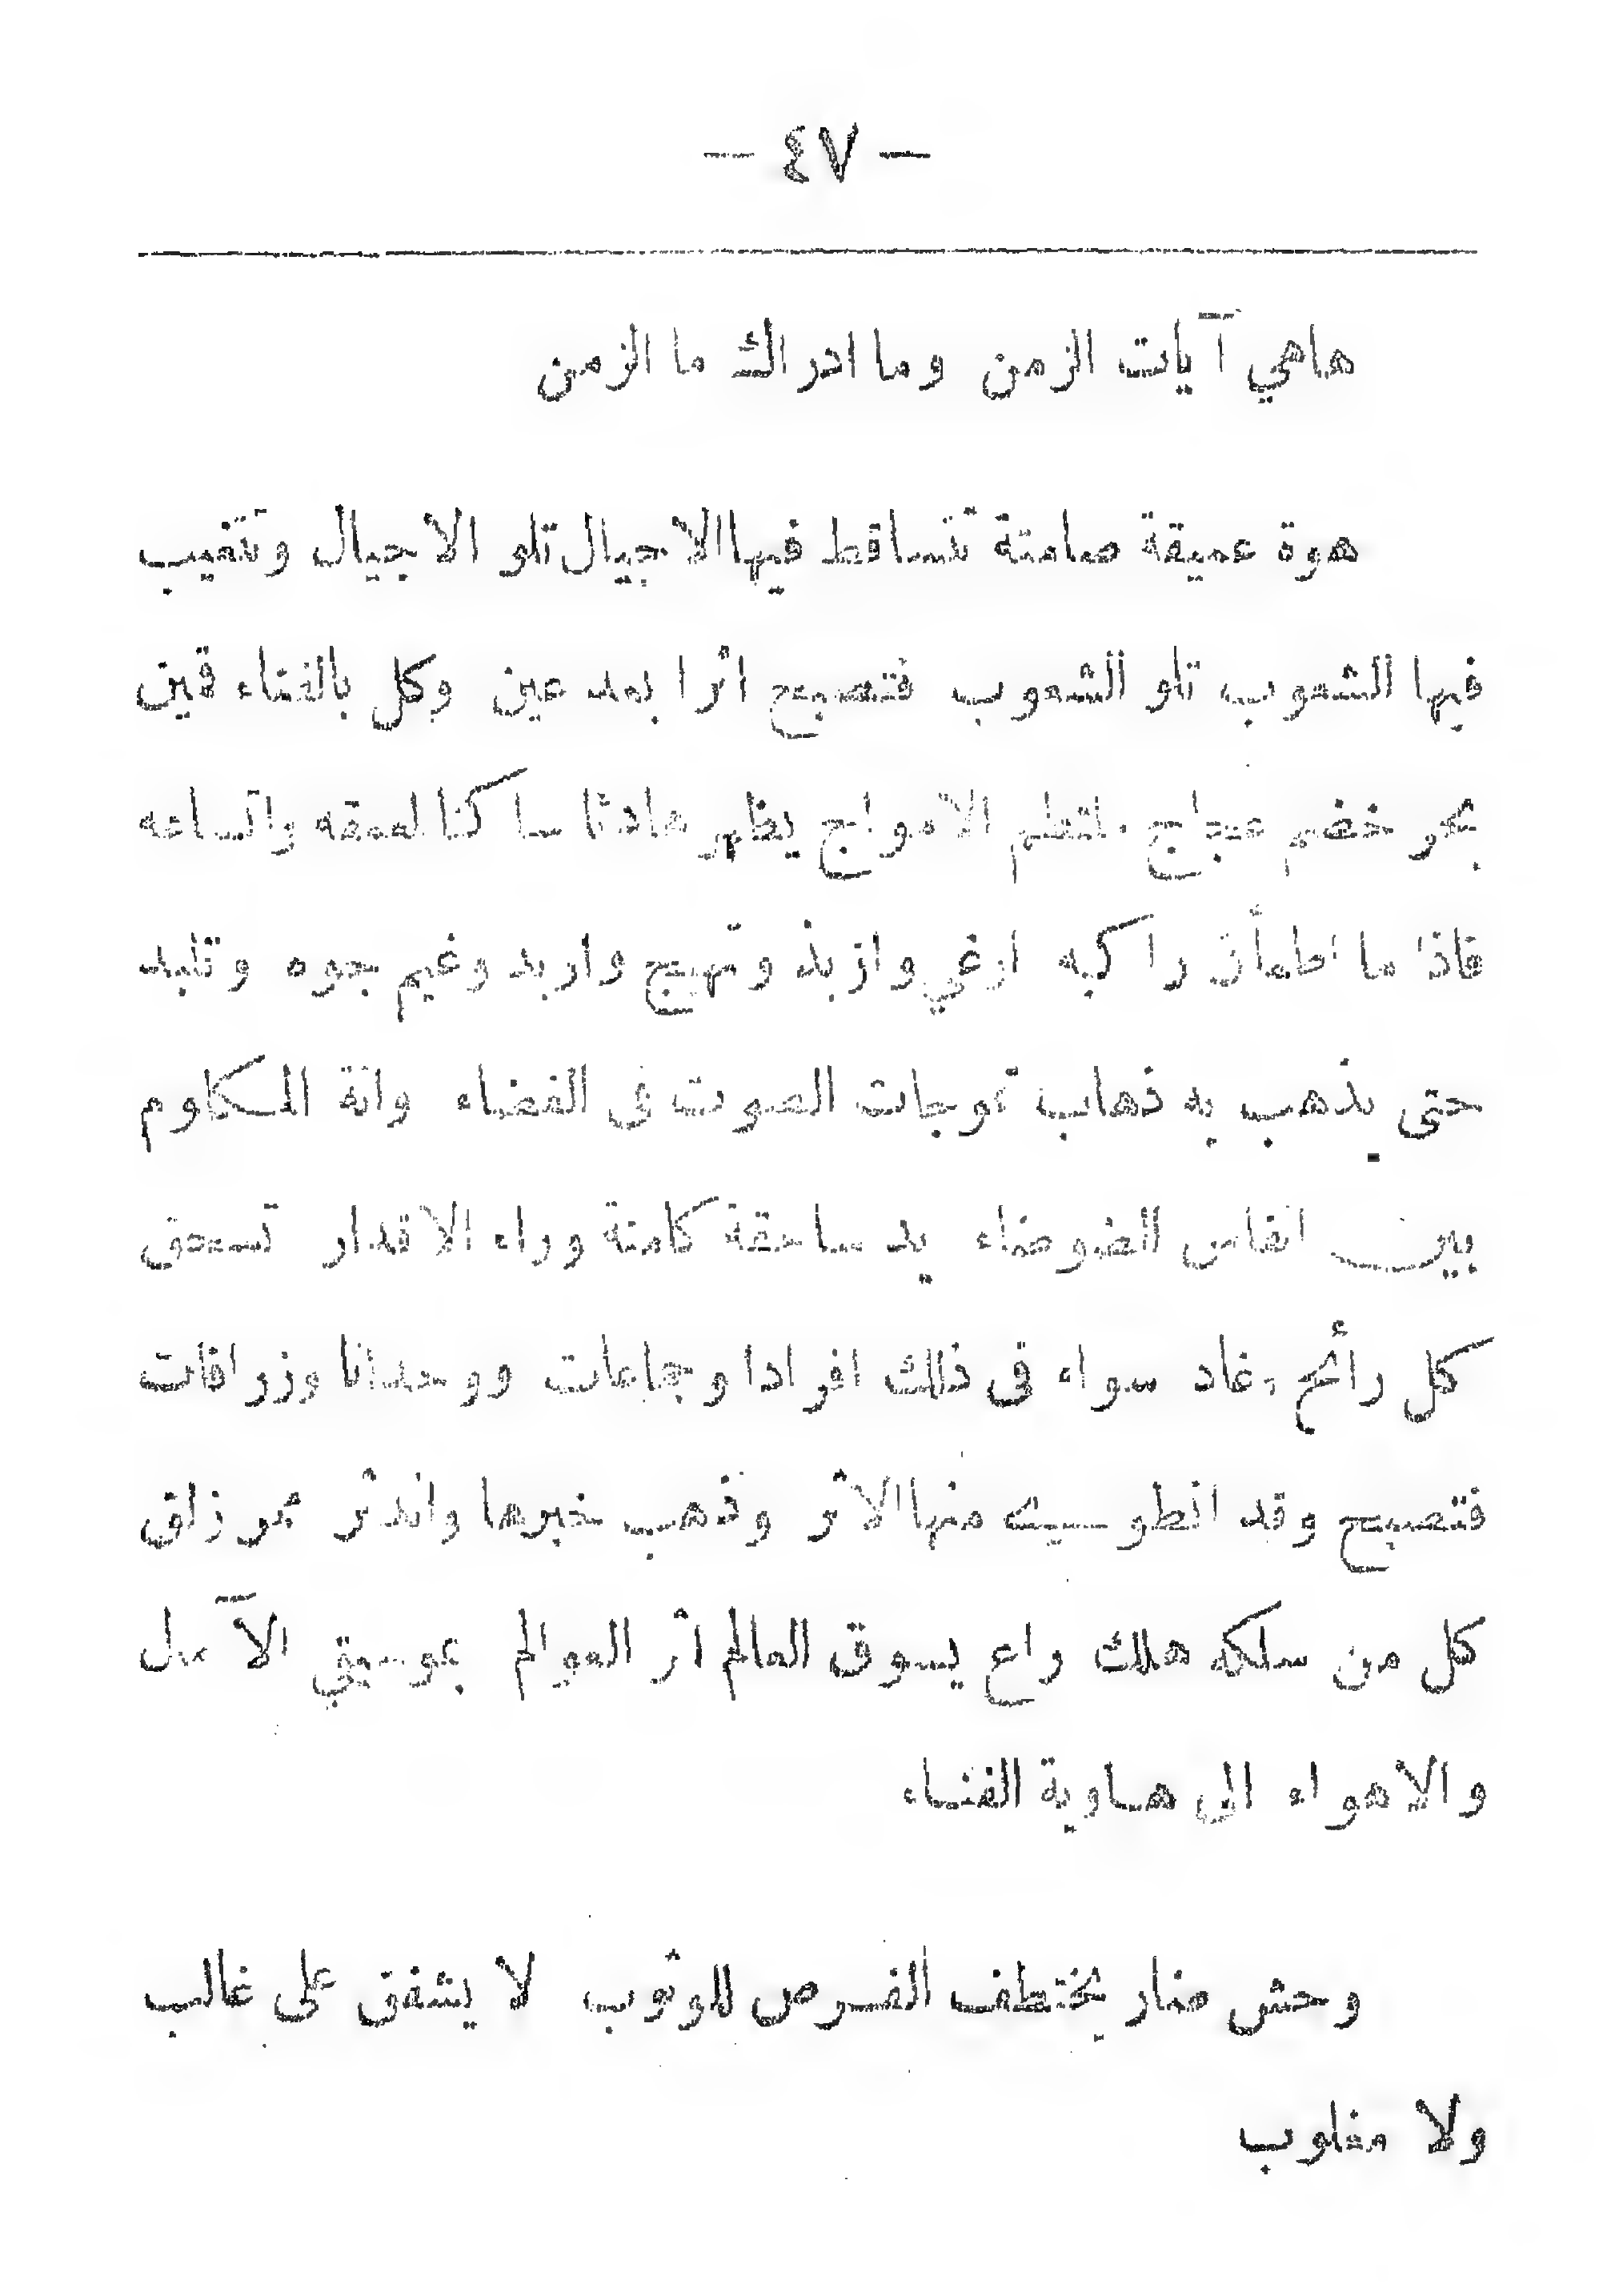 — ٤٧ —
هاهي آيات الزمن وما ادراك ما الزمن
هوة عميقة صامتة تتساقط فيها الاجيال تلو الاجيال وتتغيب
فيها الشعوب تلو الشعوب فتصبح اثرا بعد عين وكل بالفناء قمين
بحر خضم عجاج ملتطم الامواج يظهر هادئا ساكنا لعمقه واتساعه
فاذا ما اطمأن راكبه ارغي وازبذ وتهيج واربد وغيم بجوه وتلبد
حتى يذهب به ذهاب تموجات الصوت في الفضاء وانة المكلوم
بين انفاس الضوضاء يد ساحقة كامنة وراء الاقدار تسحق
كل رأئح وغاد سواء في ذلك افرادا وجماعات ووحدانا وزرافات
فتصبح وقد انطوى منها الاثر وذهب خبرها واندثر ممر زلق
كل من سلكه هلك راع يسوق العالم اثر العوالم بموسيقي الآمال
والاهواء الى هاوية الفناء
وحش ضار يختطف الفرص للوثوب لا يشفق على غالب
ولا مغلوب